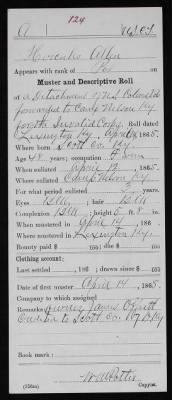 124
A | U.S.C.T.
Allen
Appears with rank of Pvt on
Muster and Descriptive Roll
of a Detachment of U.S. Colored
forwarded to Camp Nelson Ky
for the Invalid Corps. Roll dated
Lexington Ky, April 14, 1865.
Where born Scott Co. Ky.
Age 48 years; occupation Farmer
When enlisted April 12, 1865.
Where enlisted Camp Nelson Ky
For what period enlisted years.
Eyes Blk; hair Blk
Complexion Blk; height 5 ft. in.
When mustered in April 14, 186 .
Where mustered in Lexington Ky.
Bounty paid $ 100; due $ 100
Clothing account:
Last settled , 186 ; drawn since $ 100
Date of first muster April 14, 1865.
Company to which assigned
Remarks: Owner James
Credited to Scott Co. Ky
Book mark:
(356m) Copyist.